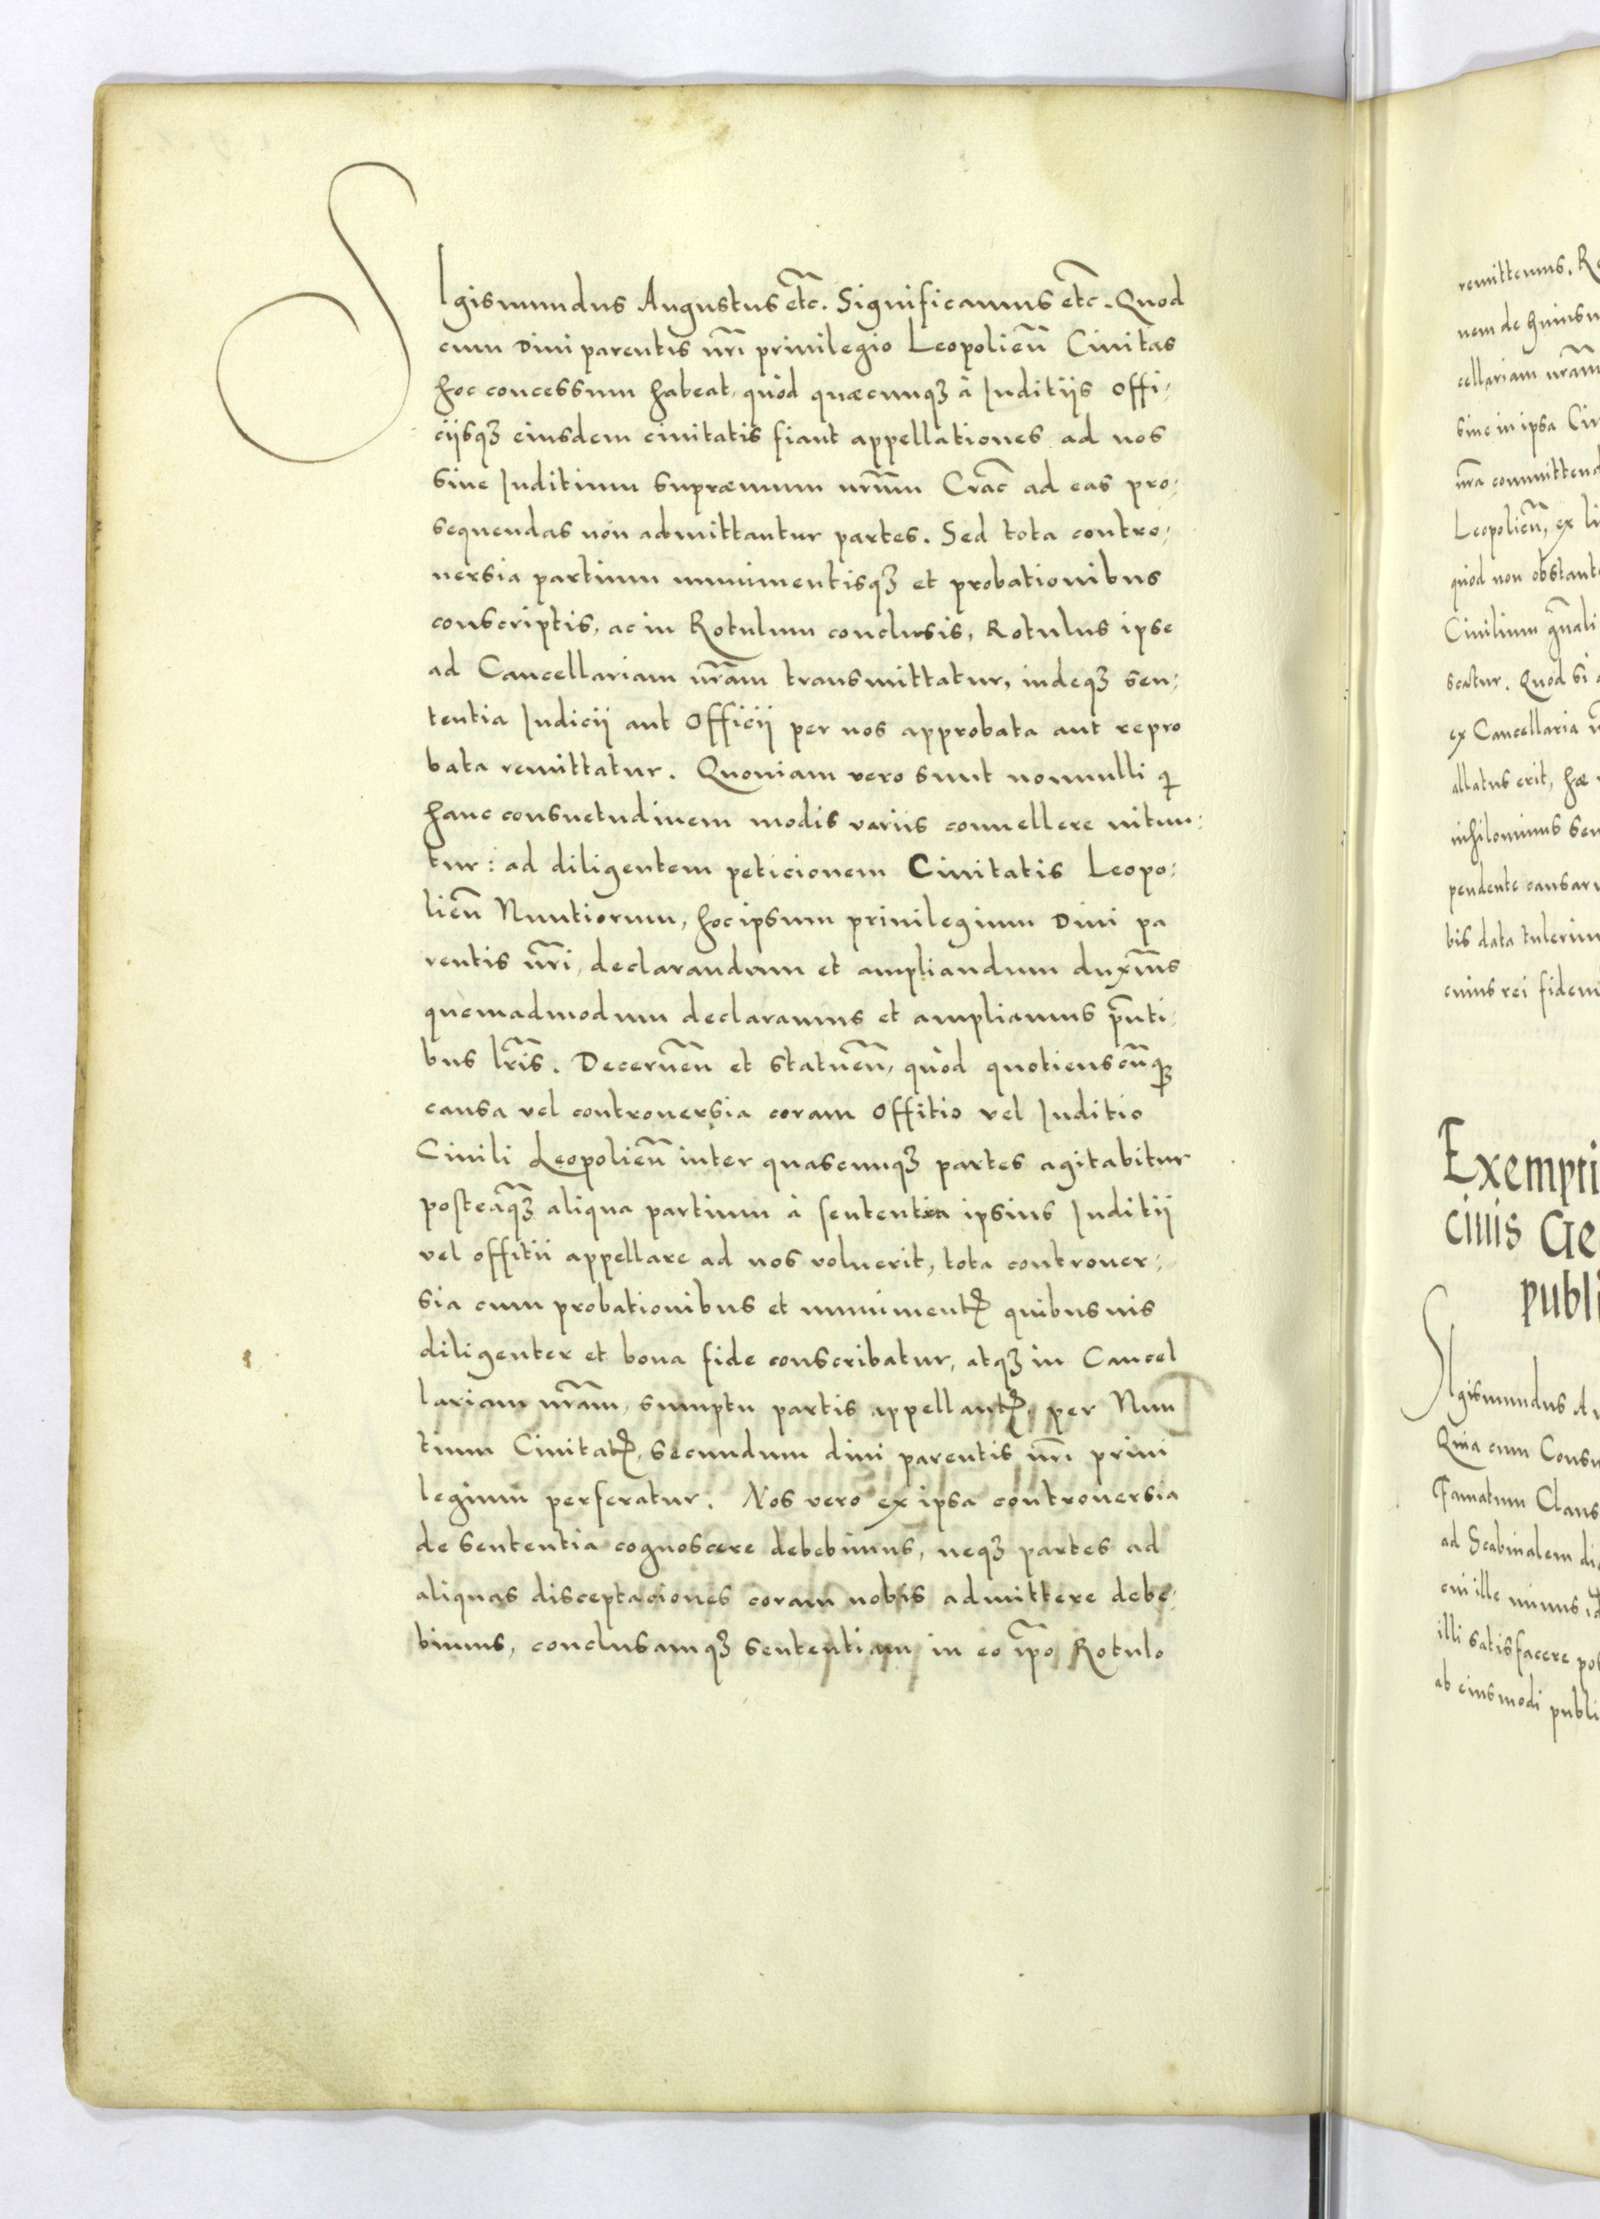 SIgismundus Augustus etc̃. Significamus etc̃. Quod
cum Diui parentis nr̃i priuilegio Leopolien̄ Ciuitas
hoc concessum habeat, quòd quæcunqȝ à Iuditijs Offi-
cijsqȝ eiusdem ciuitatis fiant appellationes ad nos
siue Iuditium supræmum nr̃um Crac̃ ad eas pro-
sequendas non admittantur partes. Sed tota contro-
uersia partium munimentisqȝ et probationibus
conscriptis, ac in Rotulum conclusis, Rotulus ipse
ad Cancellariam nr̃am transmittatur, indeqȝ sen-
tentia Iudicij aut Officij per nos approbata aut repro
bata remittatur. Quoniam vero sunt nonnulli q̃
hanc consuetudinem modis varijs conuellere nitun-
tur: ad diligentem peticionem Ciuitatis Leopo-
lien̄ Nuntiorum, hoc ipsum priuilegium Diui pa
rentis nr̃i, declarandum et ampliandum duxim̃s
quemadmodum declaramus et ampliamus p̃nti-
bus lr̃is. Decernen̄ et statuen̄, quòd quotienscũqȝ
causa vel controuersia coram Offitio vel Iuditio
Ciuili Leopolien̄ inter quascunqȝ partes agitabitur
posteaq̃ȝ aliqua partium à sententia ipsius Iuditij
vel offitii appellare ad nos voluerit, tota controuer-
sia cum probationibus et munimentꝭ quibusuis
diligenter et bona fide conscribatur, atqȝ in Cancel
lariam nr̃am, sumptu partis appellantꝭ, per Nun
tium Ciuitatꝭ, secundum diui parentis nr̃i priui
legium perferatur. Nos vero ex ipsa controuersia
de sententia cognoscere debebimus, neqȝ partes ad
aliquas disceptaciones coram nobis admittere debe-
bimus, conclusamqȝ sententiam in eo ip̃o Rotulo
remittemus.
nem de huiusm
cellariam nr̃am
siue in ipsa
nr̃a committend
Leopolien̄, ex li
quòd non obstant
Ciuilium gñali
scatur. Quod si
ex Cancellaria
allatus erit, hæ
nihilominus sen
pendente causar
bis data tulerim
cuius rei fidem
Exempti
ciuis Ge
publi
SIgismundus A
Quia cum Consu
Famatum Claus
ad Scabinalem
cui ille munus
illi satisfacere pot
ab eiusmodi publi